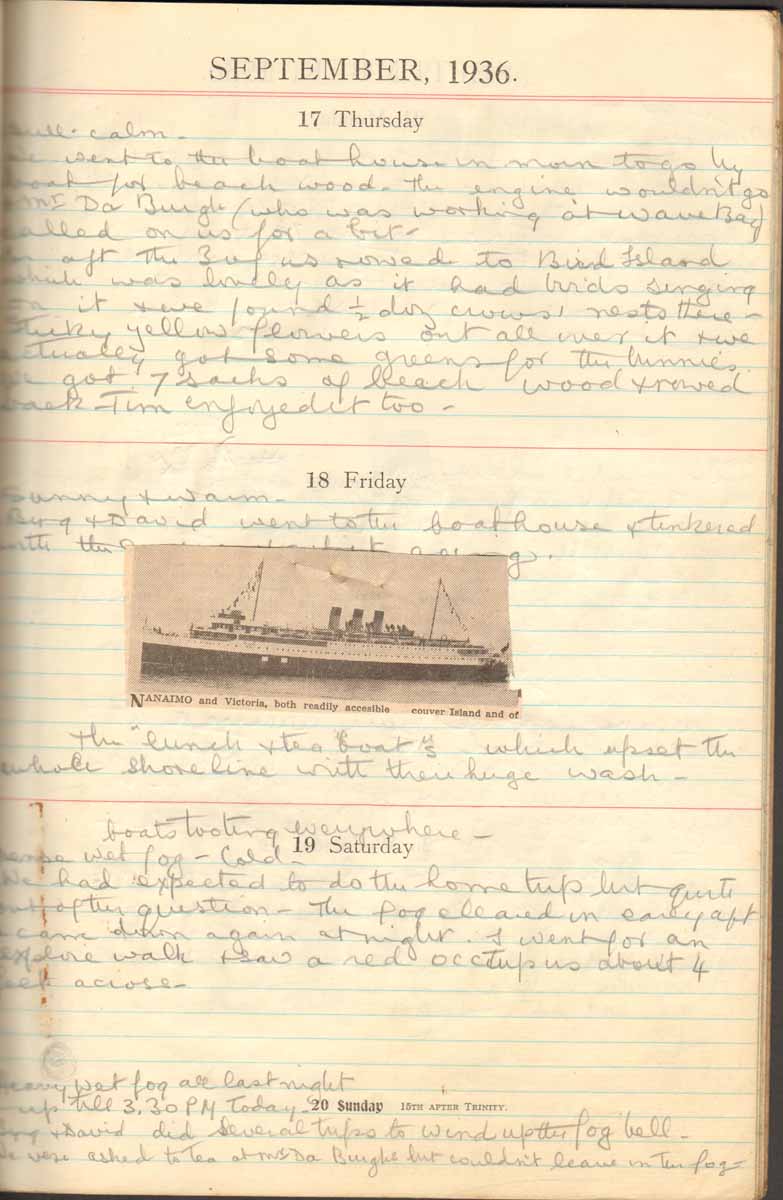 SEPTEMBER, 1936.
17 Thursday
calm -
went to the boat house in morn to go by
boat for beach wood. The engine wouldn't go
Mr Da Burgh (who was working at Wave Bay)
called on us for a bit -
aft the 3 of us rowed to Bird Island
which was lovely as it had birds singing
on it & we found ½ doz crows' nests there -
yellow flowers out all over it & we
actually got some greens for the bunnies.
We got 7 sacks of beach wood & rowed
back - Tim enjoyed it too -
18 Friday
Sunny & warm -
& David went to the boathouse & tinkered
with the
NANAIMO and Victoria, both readily accesible couver Island and of
The "lunch & tea boat"s which upset the
whole shoreline with their huge wash -
boats tooting everywhere -
19 Saturday
Dense wet fog - Cold -
We had expected to do the home trip but quite
out of the question - The fog cleared in early aft
& came down again at night. I went for an
explore walk & saw a red occtupus about 4
feet across -
Heavy wet fog all last night
up till 3.30 PM Today -
20 Sunday 15TH AFTER TRINITY.
& David did several trips to wind up the fog bell -
We were asked to tea at Mrs Da Burghs but couldn't leave in the fog -